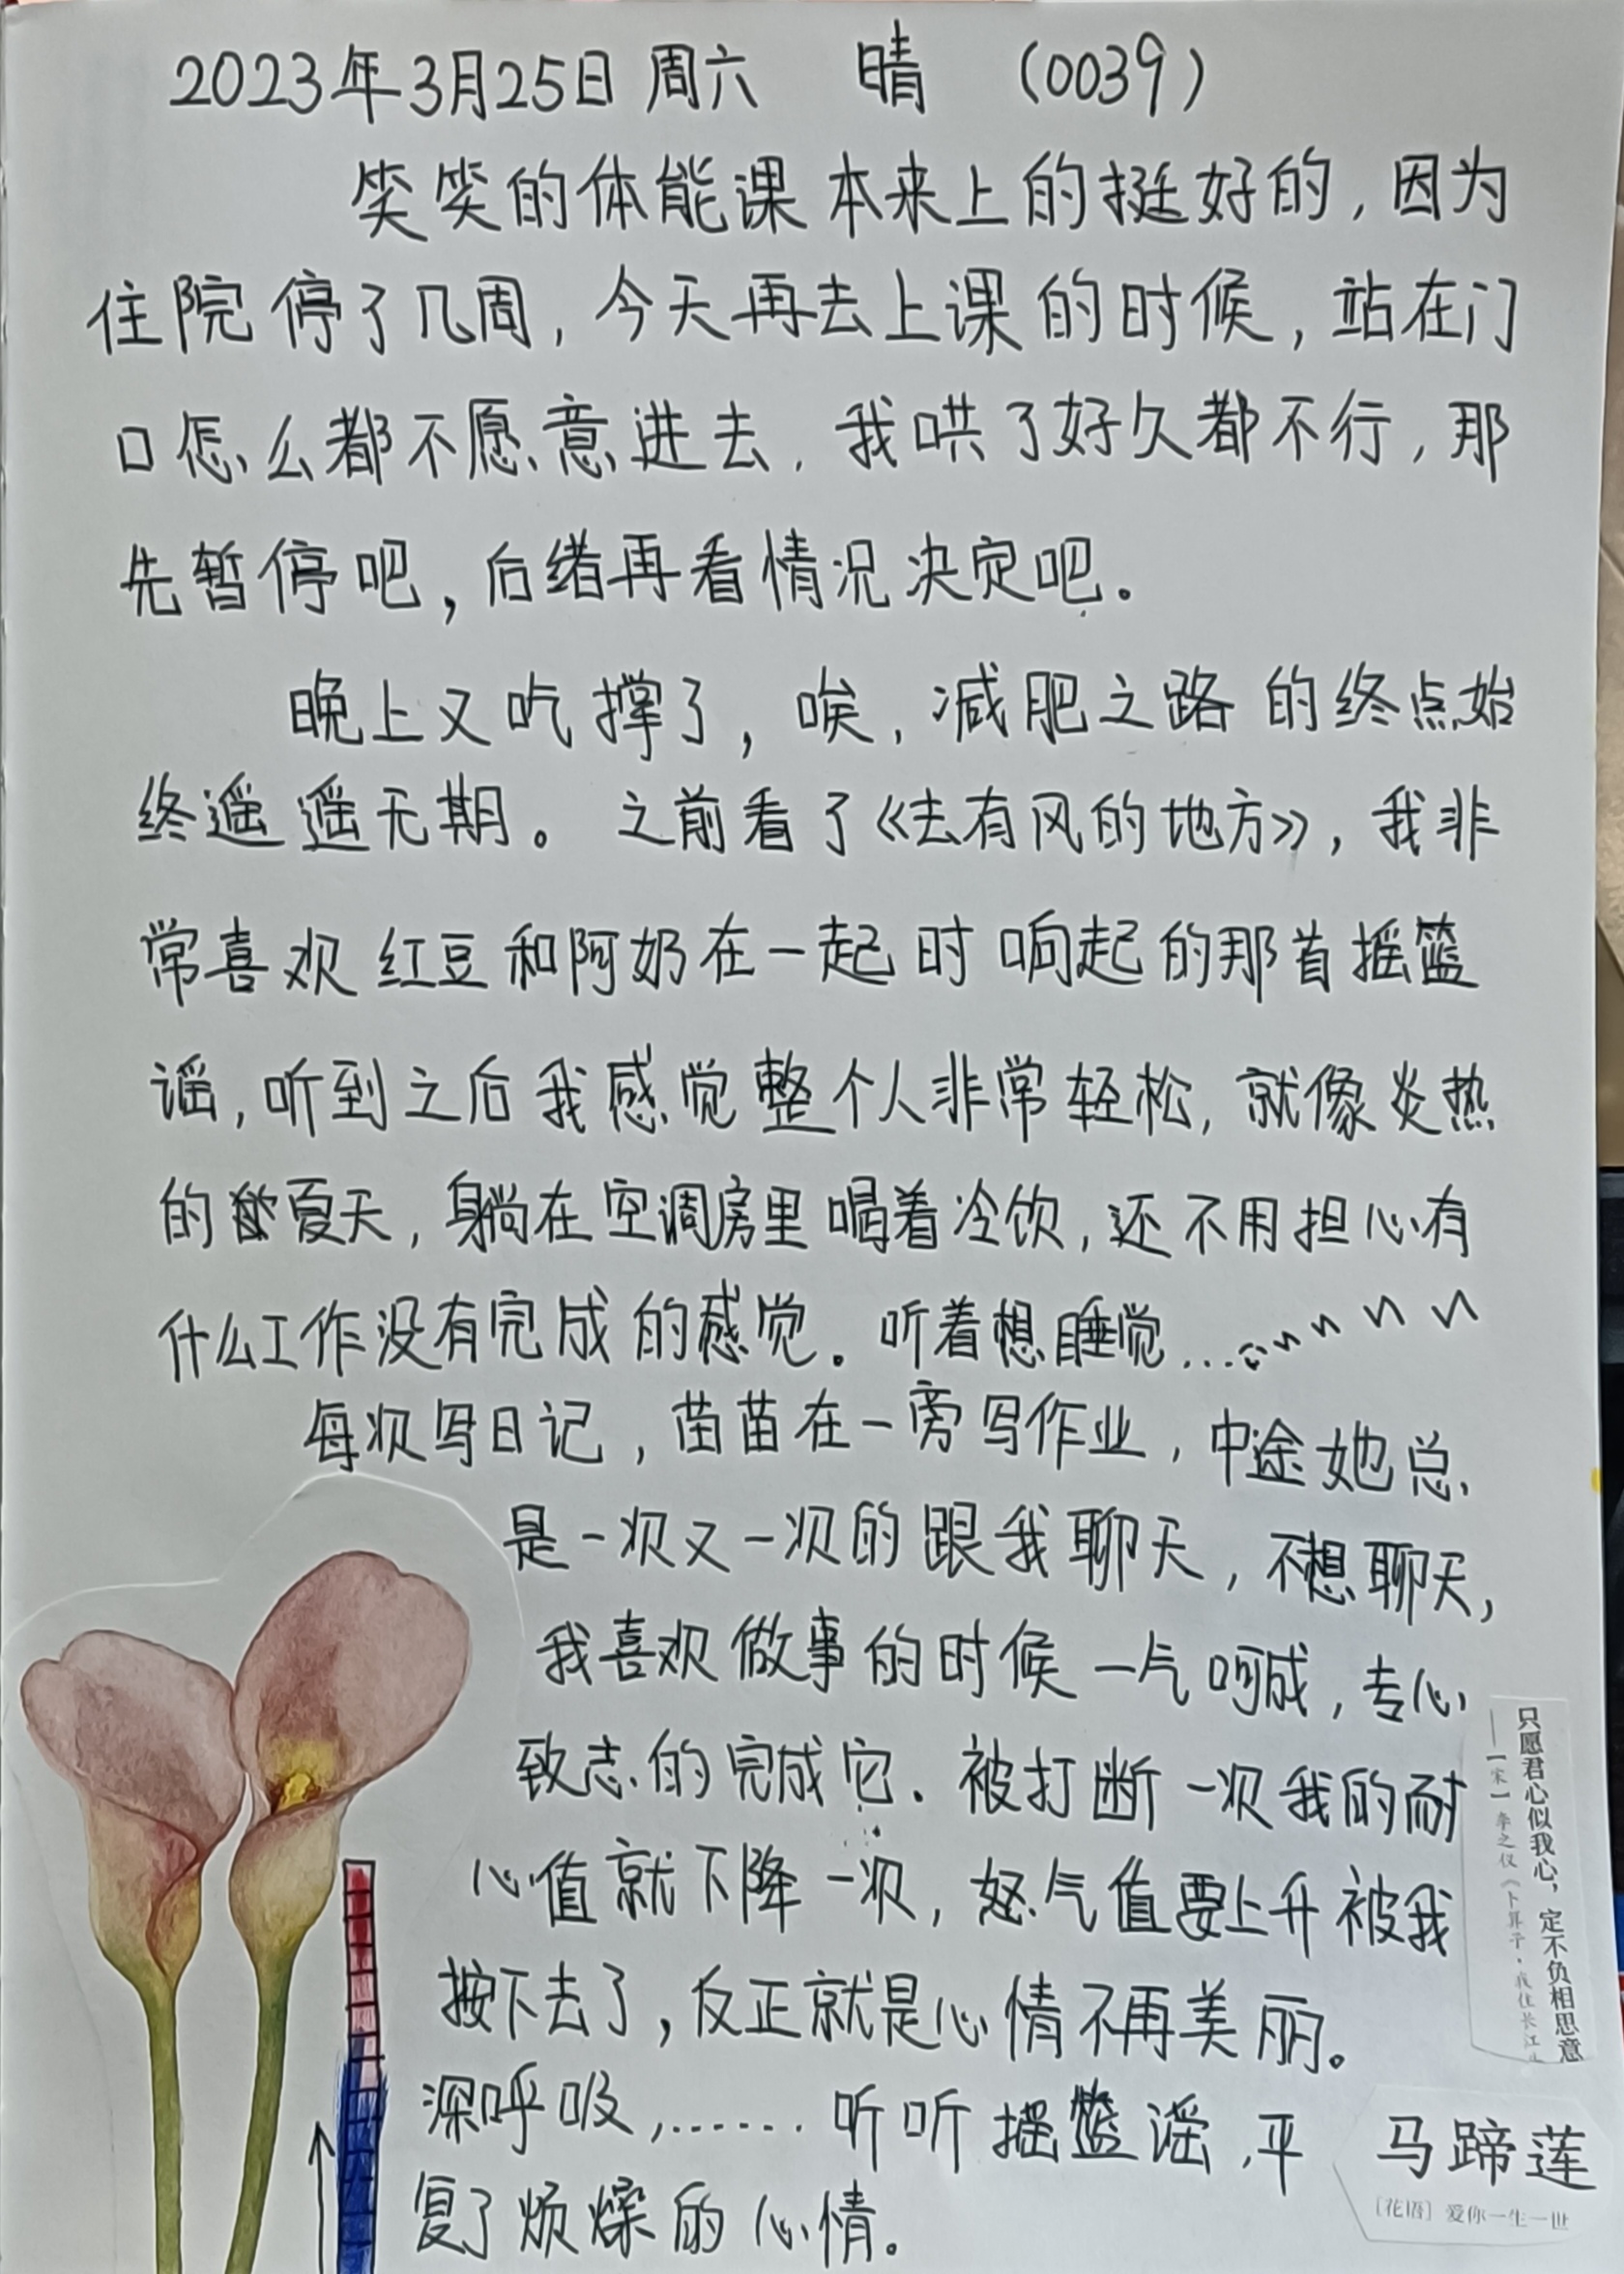 2023年3月25日 周六 晴 (0039)
笑笑的体能课本来上的挺好的,因为
住院停了几周,今天再去上课的时候,站在门
口怎么都不愿意进去,我哄了好久都不行,那
先暂停吧,后绪再看情况决定吧。
晚上又吃撑了,唉,减肥之路的终点始
终遥遥无期。之前看了《去有风的地方》,我非
常喜欢红豆和阿奶在一起时响起的那首摇篮
谣,听到之后我感觉整个人非常轻松,就像炎热
的夏天,躺在空调房里喝着冷饮,还不用担心有
什么工作没有完成的感觉。听着想睡觉......
每次写日记,苗苗在一旁写作业,中途她总
是一次又一次的跟我聊天,不想聊天,
我喜欢做事的时候一气呵成,专心
致志的完成它.被打断一次我的耐
心值就下降一次,怒气值要上升被我
按下去了,反正就是心情不再美丽。
深呼吸,......听听摇篮谣,平
复了烦燥的心情。
只愿君心似我心,定不负相思意
——[宋]李之仪《卜算子·我住长江
马蹄莲
[花语] 爱你一生一世